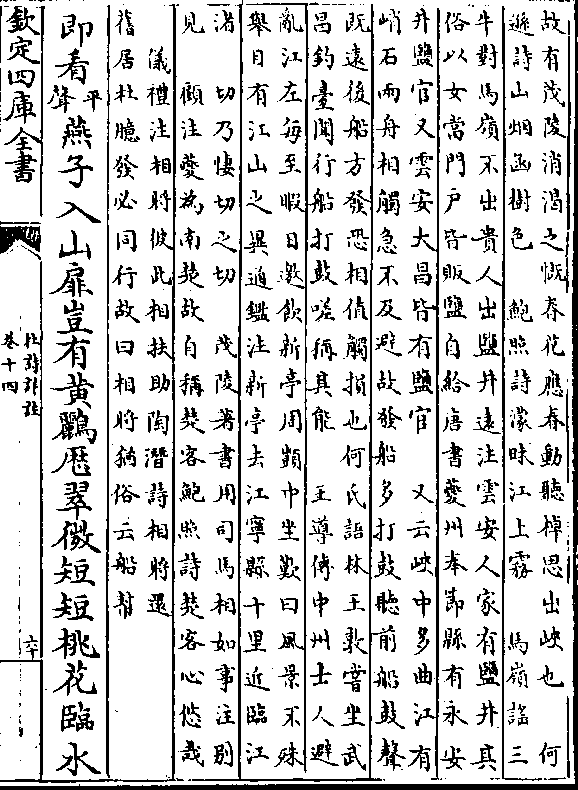 故有茂陵消渴之慨春花應春動聽棹思出峽也　何
遜詩山烟函樹色　鮑照詩濛昧江上霧　馬嶺謠三
牛對馬嶺不出貴人出鹽井遠注雲安人家有鹽井其
俗以女當門戶皆販鹽自給唐書夔州奉節縣有永安
井鹽官又雲安大昌皆有鹽官　又云峽中多曲江有
峭石而舟相觸急不及避故發船多打鼓聽前船鼓聲
既遠後船方發恐相值觸損也何氏語林王敦嘗坐武
昌釣臺聞行船打鼓嗟稱其能　王導傳中州士人避
亂江左每至暇日邀飲新亭周顗中坐歎曰風景不殊
舉目有江山之異通鑑注新亭去江寧縣十里近臨江
渚　切乃悽切之切　茂陵著書用司馬相如事注别
見　顧注夔為南楚故自稱楚客鮑照詩楚客心悠哉
儀禮注相將彼此相扶助陶潛詩相將還
舊居杜臆發必同行故曰相將猶俗云船幫
即看平聲燕子入山扉豈有黃鸝歷翠微短短桃花臨水
欽定四庫全書
杜詩詳註
卷十四
六十